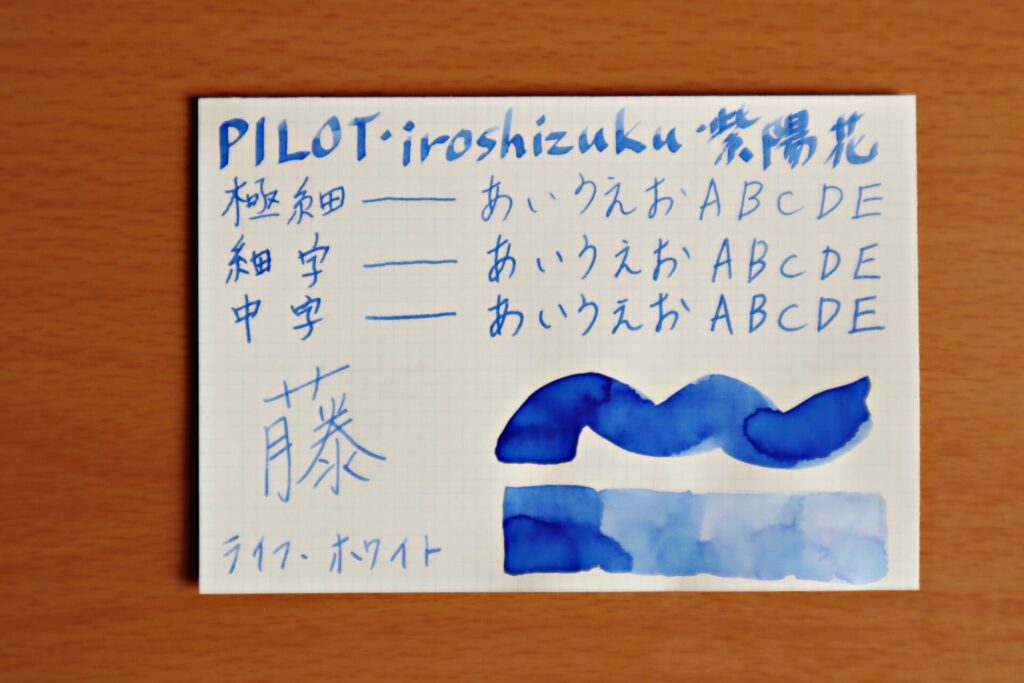 PILOT・iroshizuku・紫陽花
極細 ── あいうえお ABCDE
細字 ── あいうえお ABCDE
中字 ── あいうえお ABCDE
藤
ライフ・ホワイト